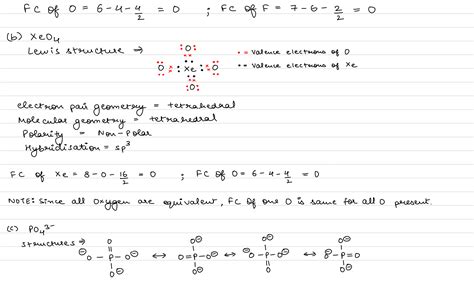 FC of O = 6-4-4/2 = 0 ; FC of F = 7-6-2/2 = 0
(b) XeO4
Lewis structure →
O
O Xe O
O
•• = Valence electrons of O
•• = Valence electrons of Xe
electron pair geometry = tetrahedral
Molecular geometry = tetrahedral
Polarity = Non-Polar
Hybridisation = sp³
FC of Xe = 8-0-16/2 = 0 ; FC of O = 6-4-4/2 = 0
NOTE: Since all Oxygen are equivalent, FC of one O is same for all O present.
(c) PO4³⁻
structures →
O⊖ O⊖ O⊖ O⊖
⊖O-P-O⊖ ↔ O=P-O⊖ ↔ ⊖O-P-O⊖ ↔ ⊖O-P=O
O⊖ O⊖ O O⊖